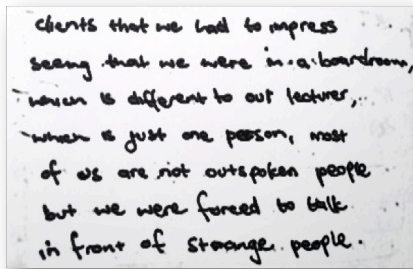 clients that we had to impress
seeing that we were in a boardroom,
which is different to out lecturer,
which is just one person, most
of us are not outspoken people
but we were forced to talk
in front of strange people.